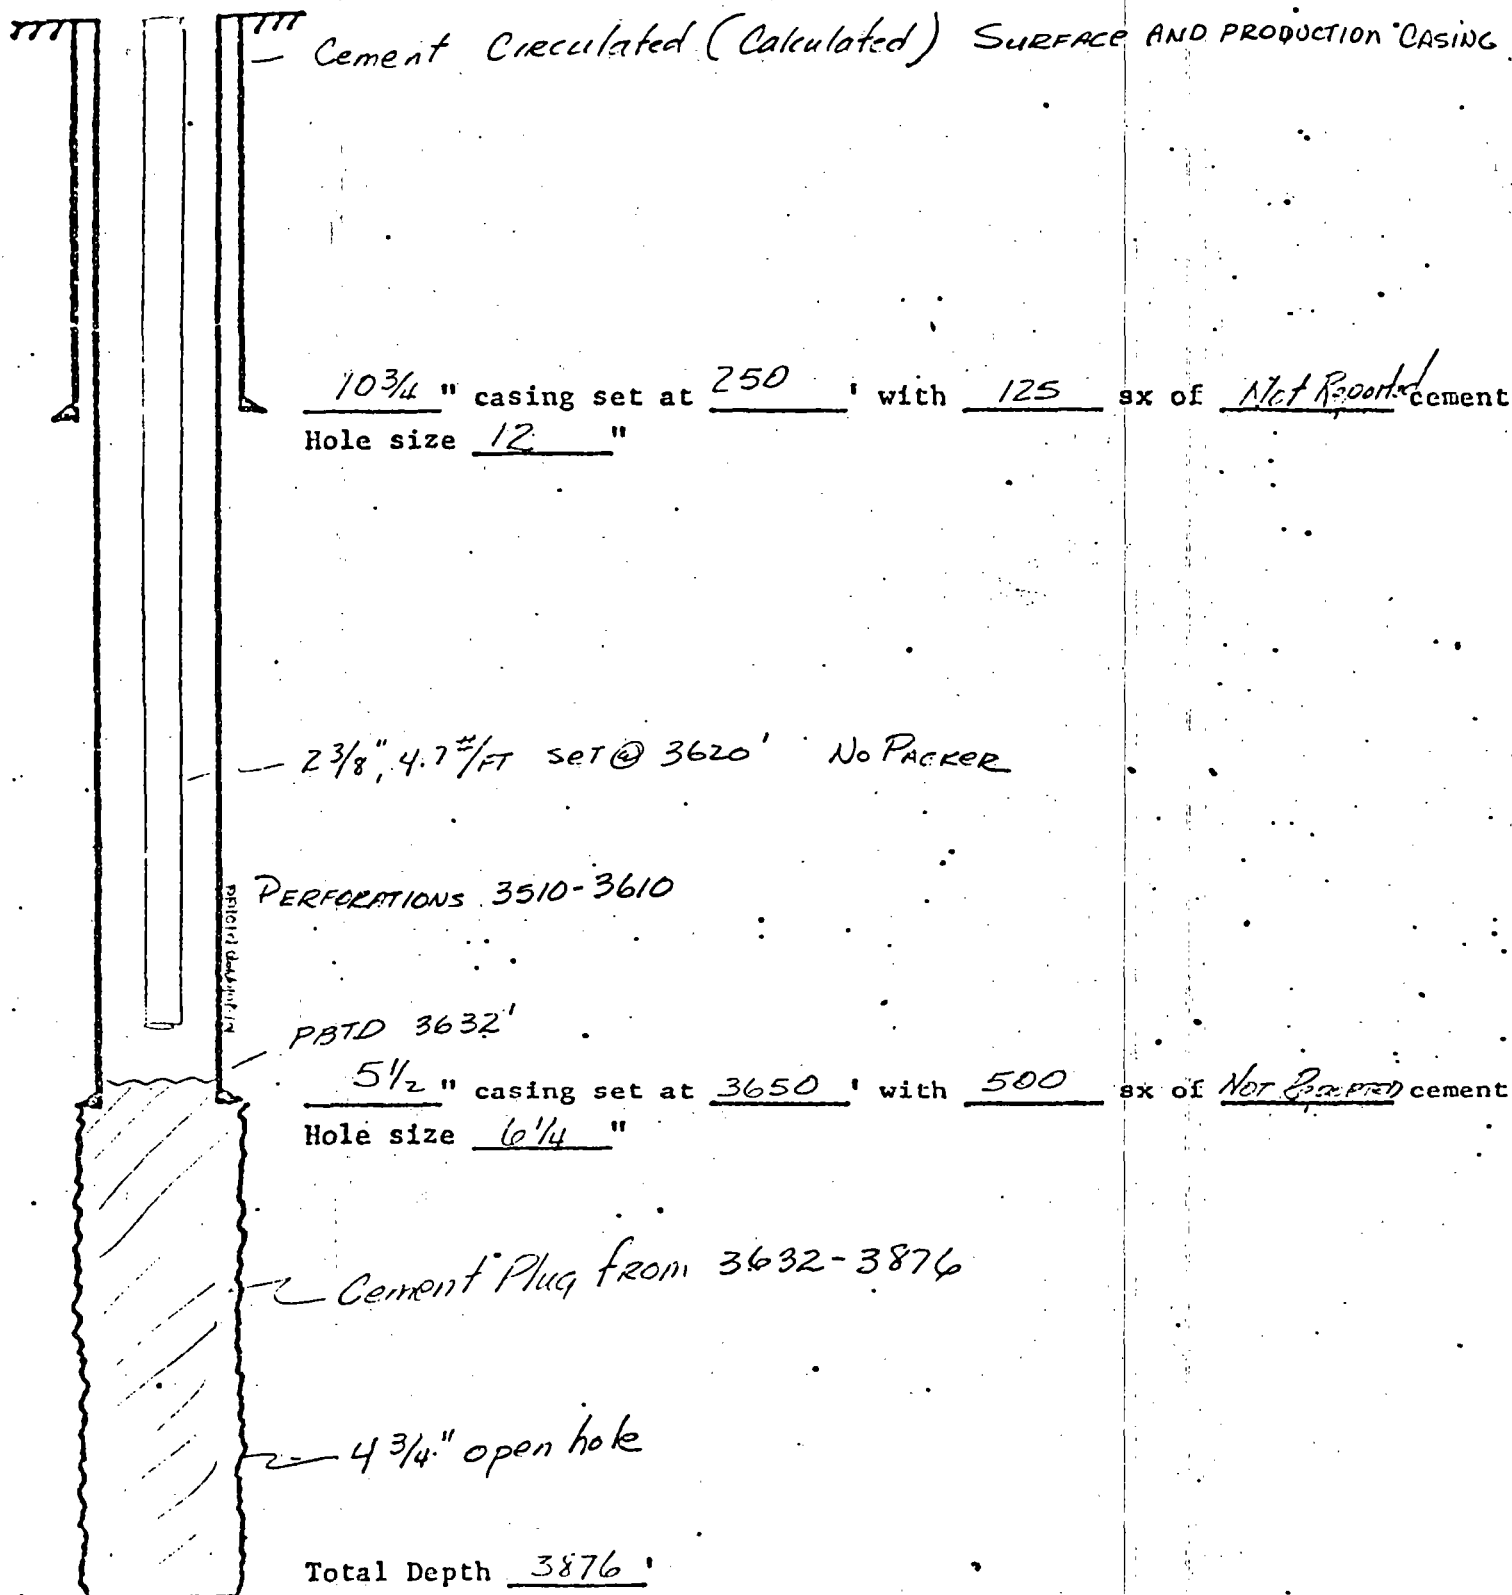 Cement Circulated (Calculated) SURFACE AND PRODUCTION CASING
10 3/4 " casing set at 250 ' with 125 sx of Not Reported cement
Hole size 12 "
2 3/8", 4.7 #/FT SET @ 3620' No PACKER
PERFORATIONS 3510-3610
PBTD 3632'
5 1/2 " casing set at 3650 ' with 500 sx of NOT REPORTED cement
Hole size 6 1/4 "
Cement Plug from 3632-3876
4 3/4" open hole
Total Depth 3876 '